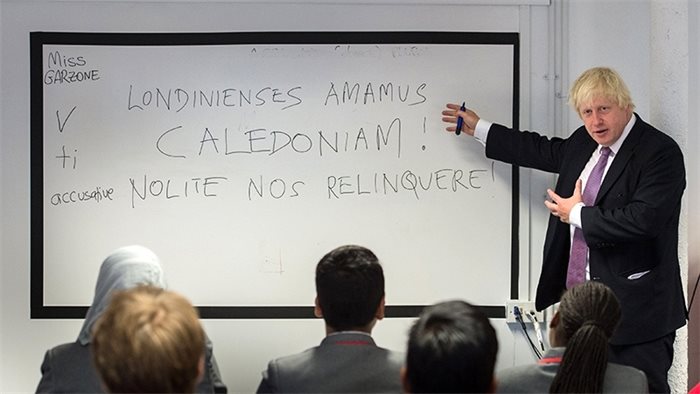 Miss
GARZONE
LONDINIENSES AMAMUS
V
CALEDONIAM!
ti
accusative
NOLITE NOS RELINQUERE!